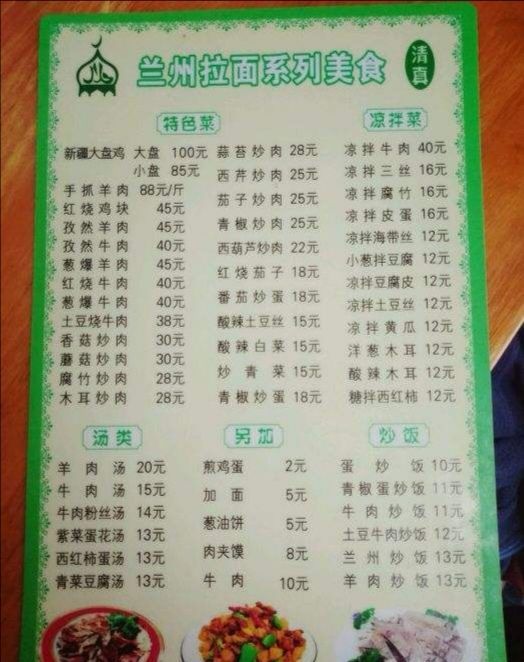 兰州拉面系列美食
清真
特色菜
新疆大盘鸡 大盘 100元
小盘 85元
手抓羊肉 88元/斤
红烧鸡块 45元
孜然羊肉 45元
孜然牛肉 40元
葱爆羊肉 45元
红烧牛肉 40元
葱爆牛肉 40元
土豆烧牛肉 38元
香菇炒肉 30元
蘑菇炒肉 30元
腐竹炒肉 28元
木耳炒肉 28元
蒜苔炒肉 28元
西芹炒肉 25元
茄子炒肉 25元
青椒炒肉 25元
西葫芦炒肉 22元
红烧茄子 18元
番茄炒蛋 18元
酸辣土豆丝 15元
酸辣白菜 15元
炒青菜 15元
青椒炒蛋 18元
凉拌菜
凉拌牛肉 40元
凉拌三丝 16元
凉拌腐竹 16元
凉拌皮蛋 16元
凉拌海带丝 12元
小葱拌豆腐 12元
凉拌豆腐皮 12元
凉拌土豆丝 12元
凉拌黄瓜 12元
洋葱木耳 12元
酸辣木耳 12元
糖拌西红柿 12元
汤类
羊肉汤 20元
牛肉汤 15元
牛肉粉丝汤 14元
紫菜蛋花汤 13元
西红柿蛋汤 13元
青菜豆腐汤 13元
另加
煎鸡蛋 2元
加面 5元
葱油饼 5元
肉夹馍 8元
牛肉 10元
炒饭
蛋炒饭 10元
青椒蛋炒饭 11元
牛肉炒饭 11元
土豆牛肉炒饭 12元
兰州炒饭 13元
羊肉炒饭 13元